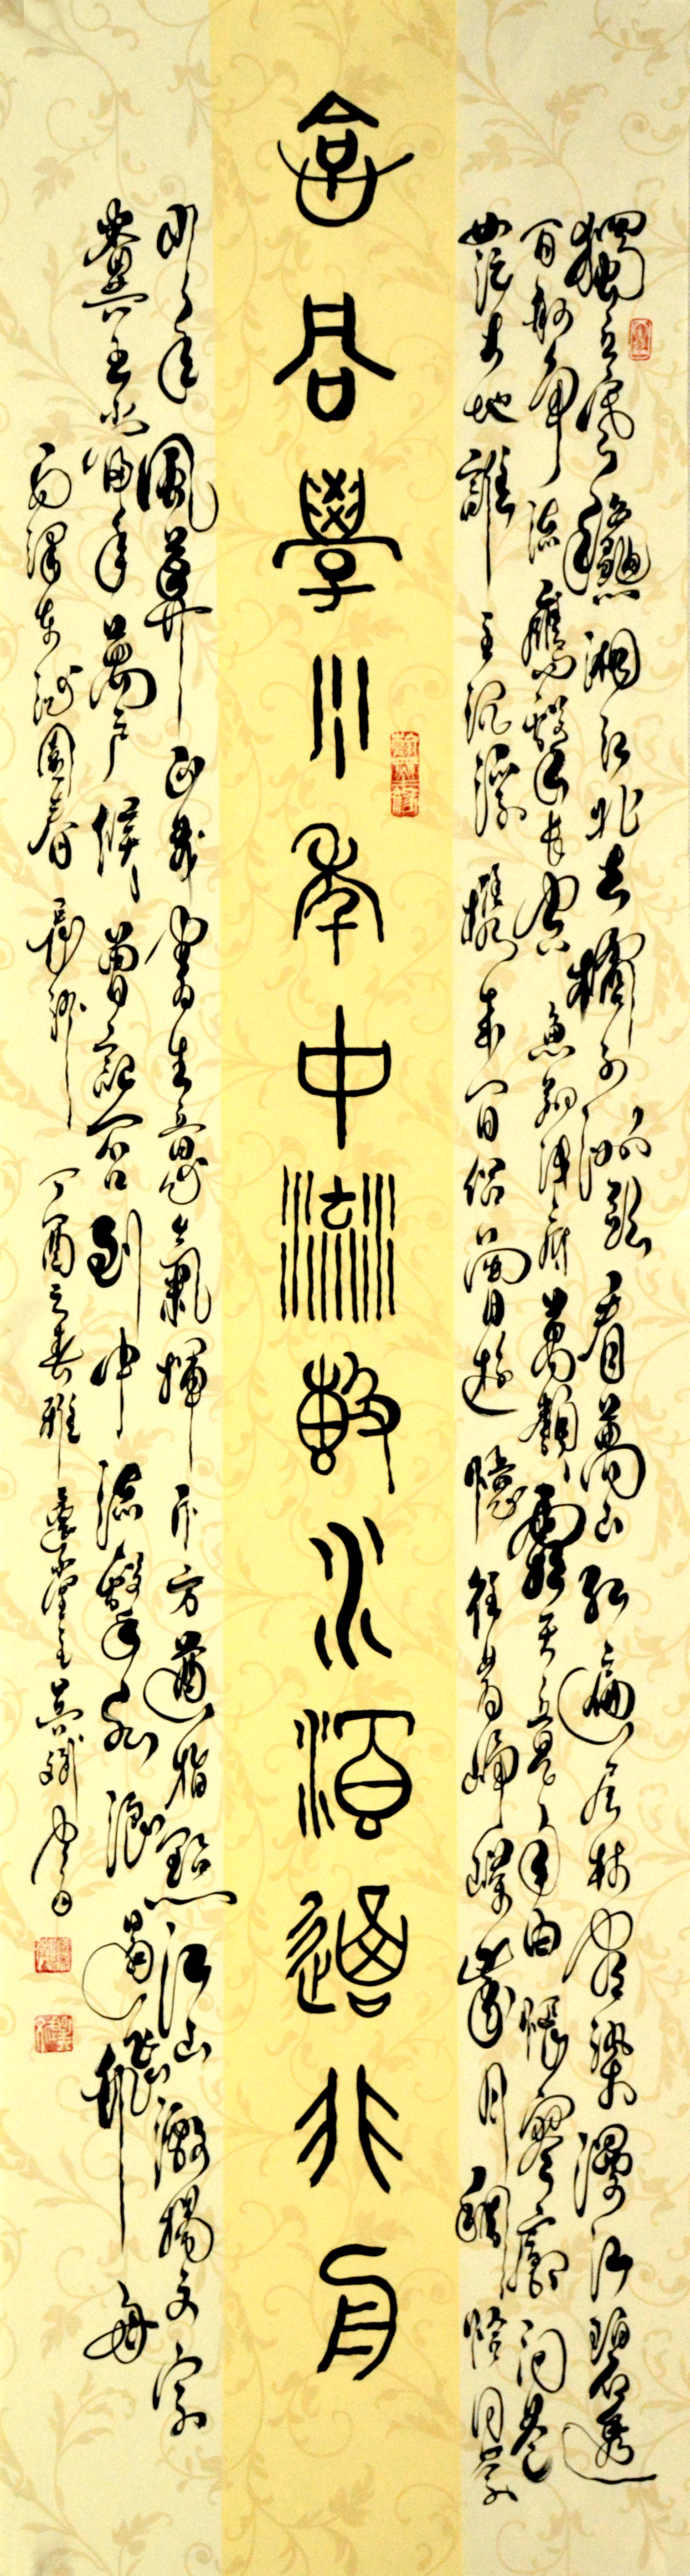 獨立寒穐湘江北去橘子洲頭看萬山紅遍層林盡染漫江碧透
百舸爭流鷹擊長空魚翔淺底萬類霜天競自由悵寥廓問蒼
茫大地誰主沉浮攜來百侶曾遊憶往昔崢嶸歲月稠恰同學
恰同學少年中流擊水浪遏飛舟
少年風華正茂書生意氣揮斥方遒指點江山激揚文字
糞土當年萬戶侯曾記否到中流擊水浪遏飛舟
毛澤東沁園春長沙 丁酉之春雅蓮堂主